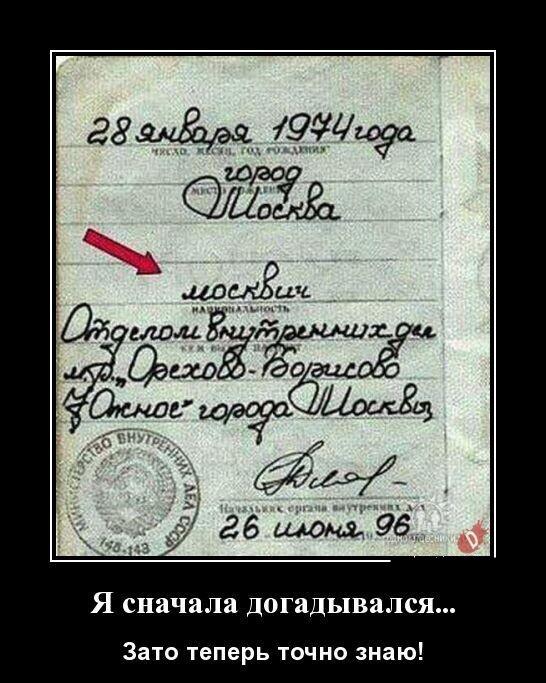 28 января 1974 года
ЧИСЛО, МЕСЯЦ, ГОД РОЖДЕНИЯ
город
МЕСТО РОЖДЕНИЯ
Москва
москвич
НАЦИОНАЛЬНОСТЬ
Отделом внутренних дел
КЕМ ВЫДАН ПАСПОРТ
м/р. „Орехово-Борисово
Южное" города Москвы
МИНИСТЕРСТВО ВНУТРЕННИХ ДЕЛ СССР
148-143
Начальник органа внутренних дел
26 июня 96
D
Я сначала догадывался...
Зато теперь точно знаю!